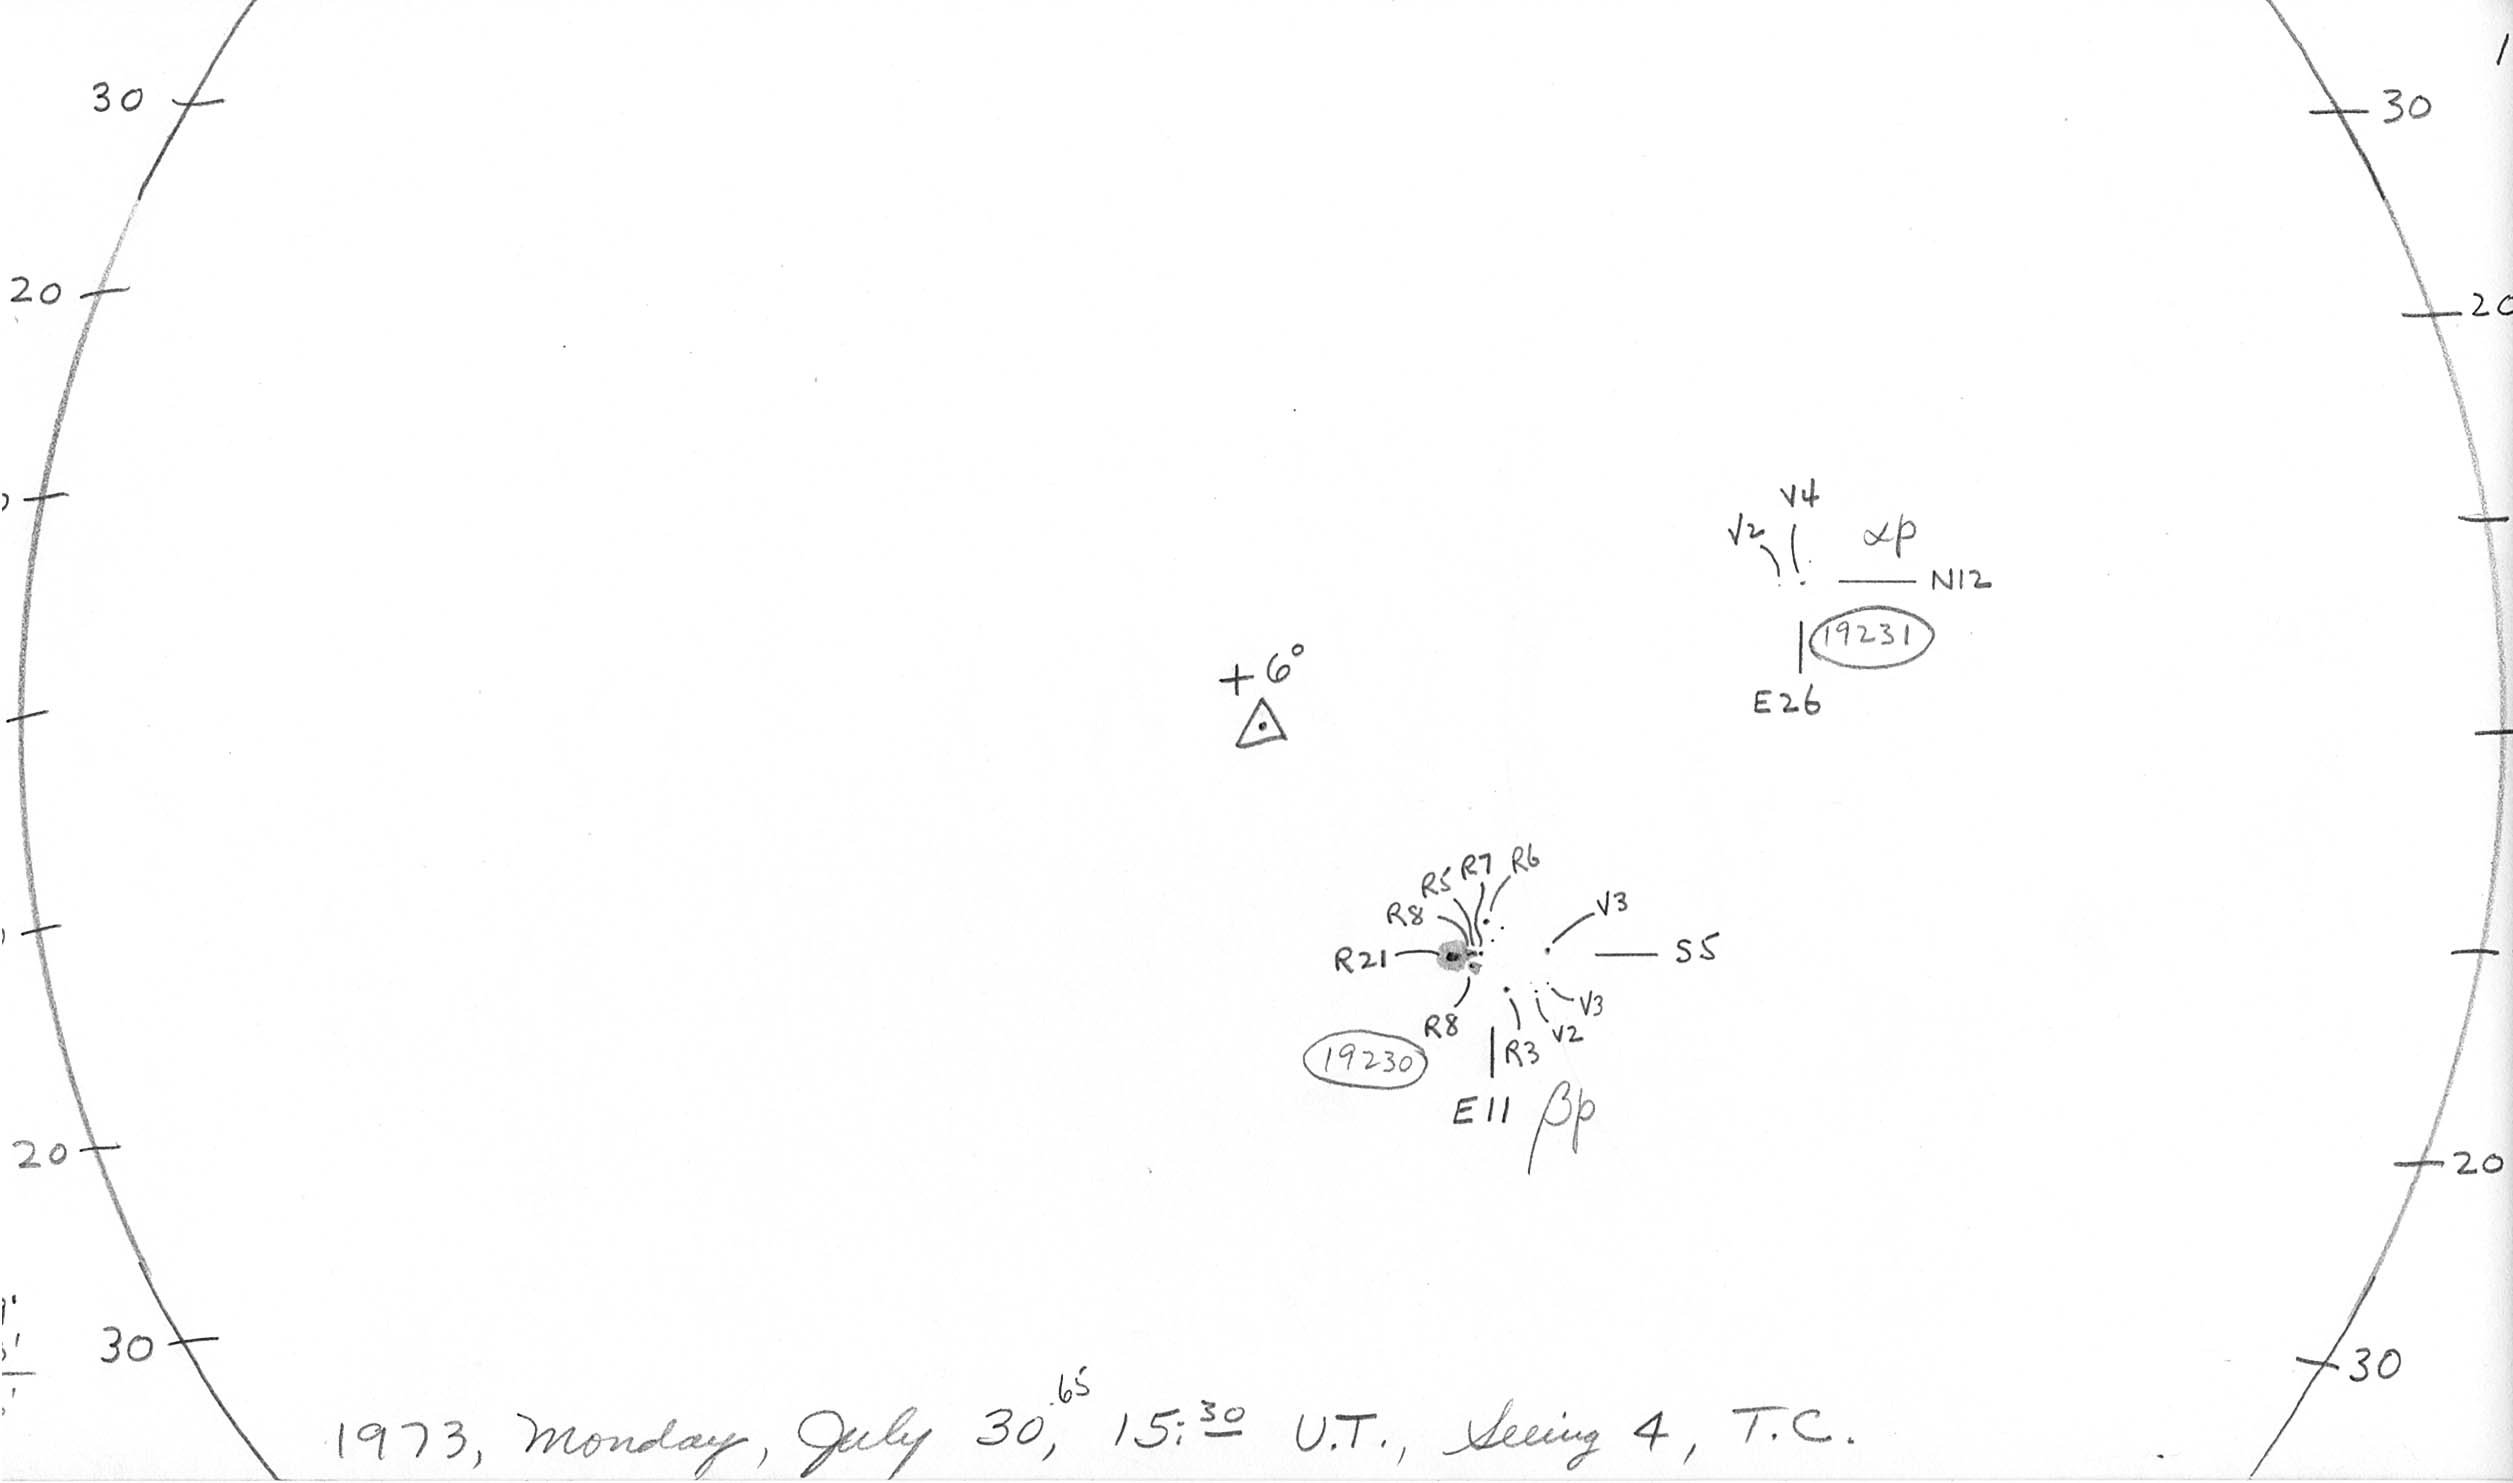 30
30
20
20
V4
V2
αp
N12
19231
+6°
E26
R7
R6
R5
R8
V3
R21
S5
V3
R8
V2
R3
19230
E11
βp
20
20
30
30
1973, Monday, July 30.65, 15:30 U.T., Seeing 4, T.C.